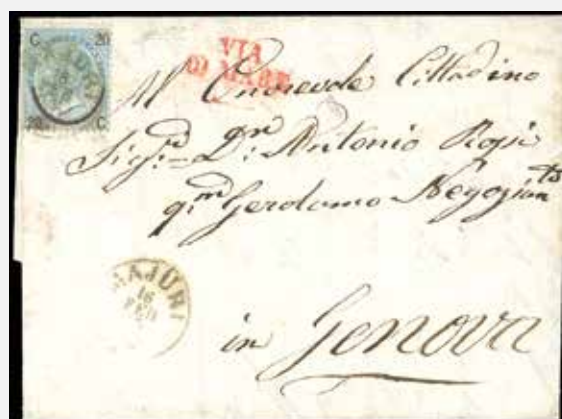 C 20
20 C
VIA
DI MARE
Al Onorevole Cittadino
Sig.r D.n Antonio
q.m Gerolamo Negoziante
MAJURI
16
FEB
in Genova